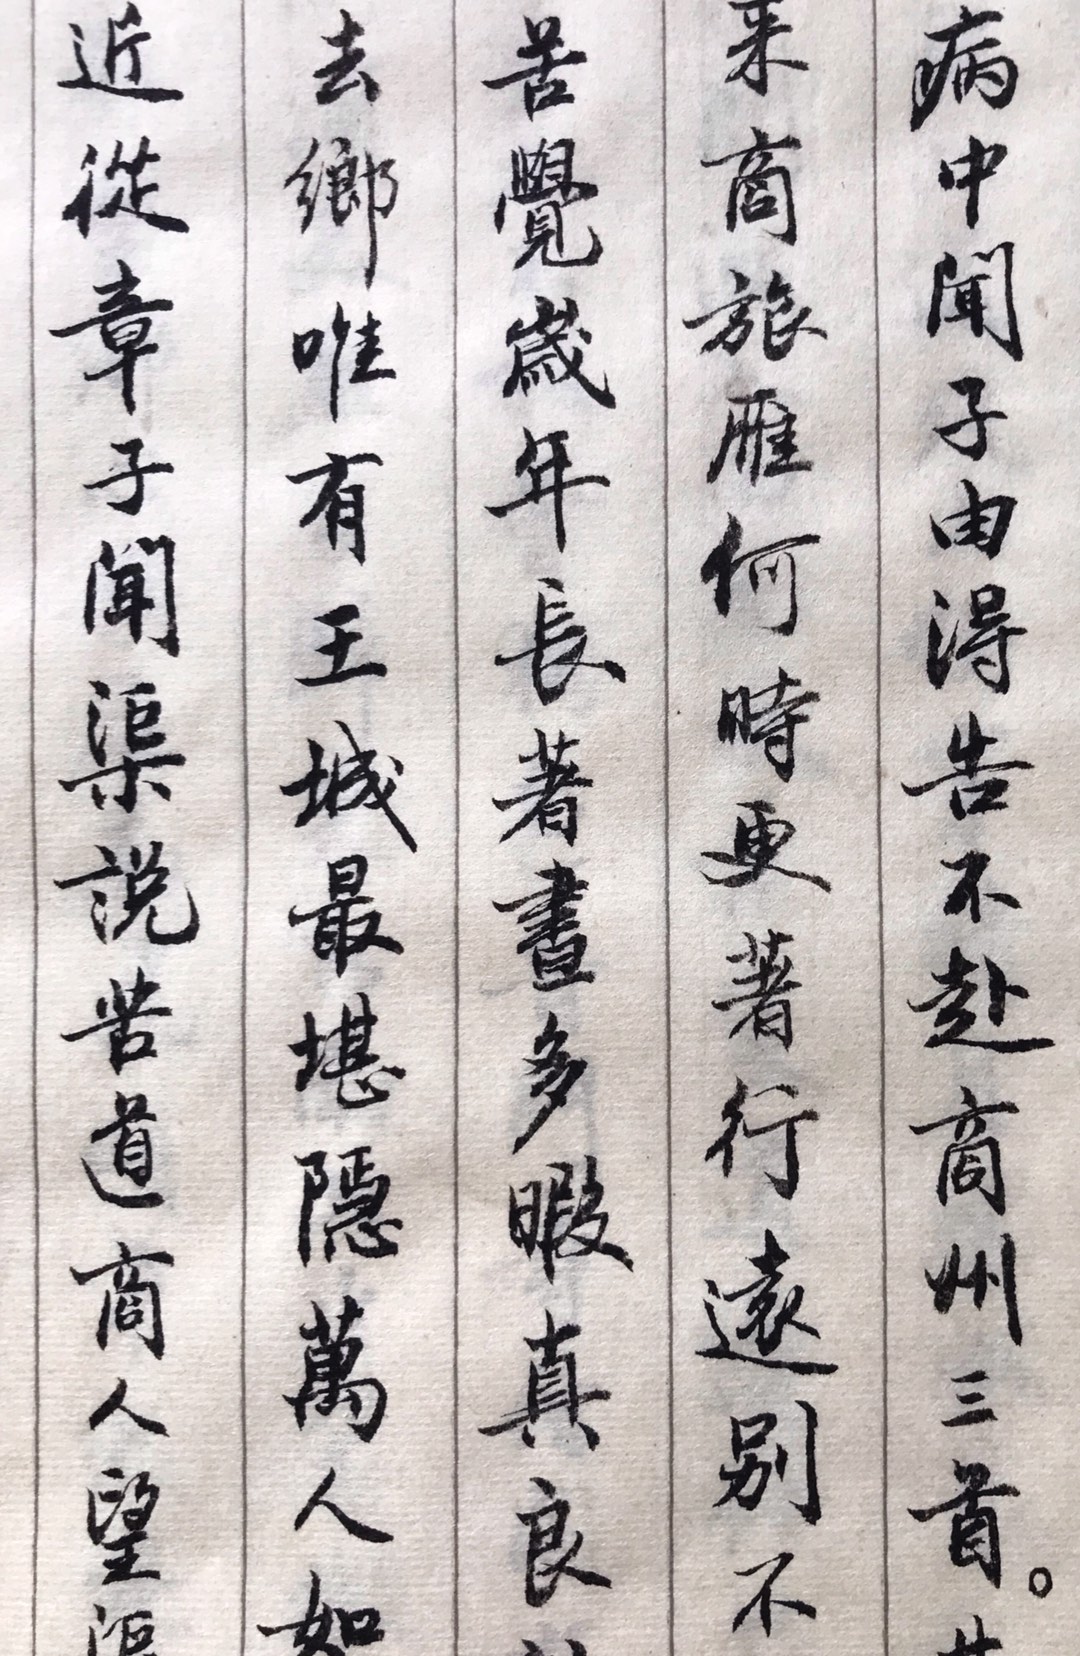 病中聞子由得告不赴商州三首。
来商旅雁何時更著行遠别不
苦覺歲年長著書多暇真良
去鄉唯有王城最堪隱萬人如
近從章子聞渠説苦道商人望